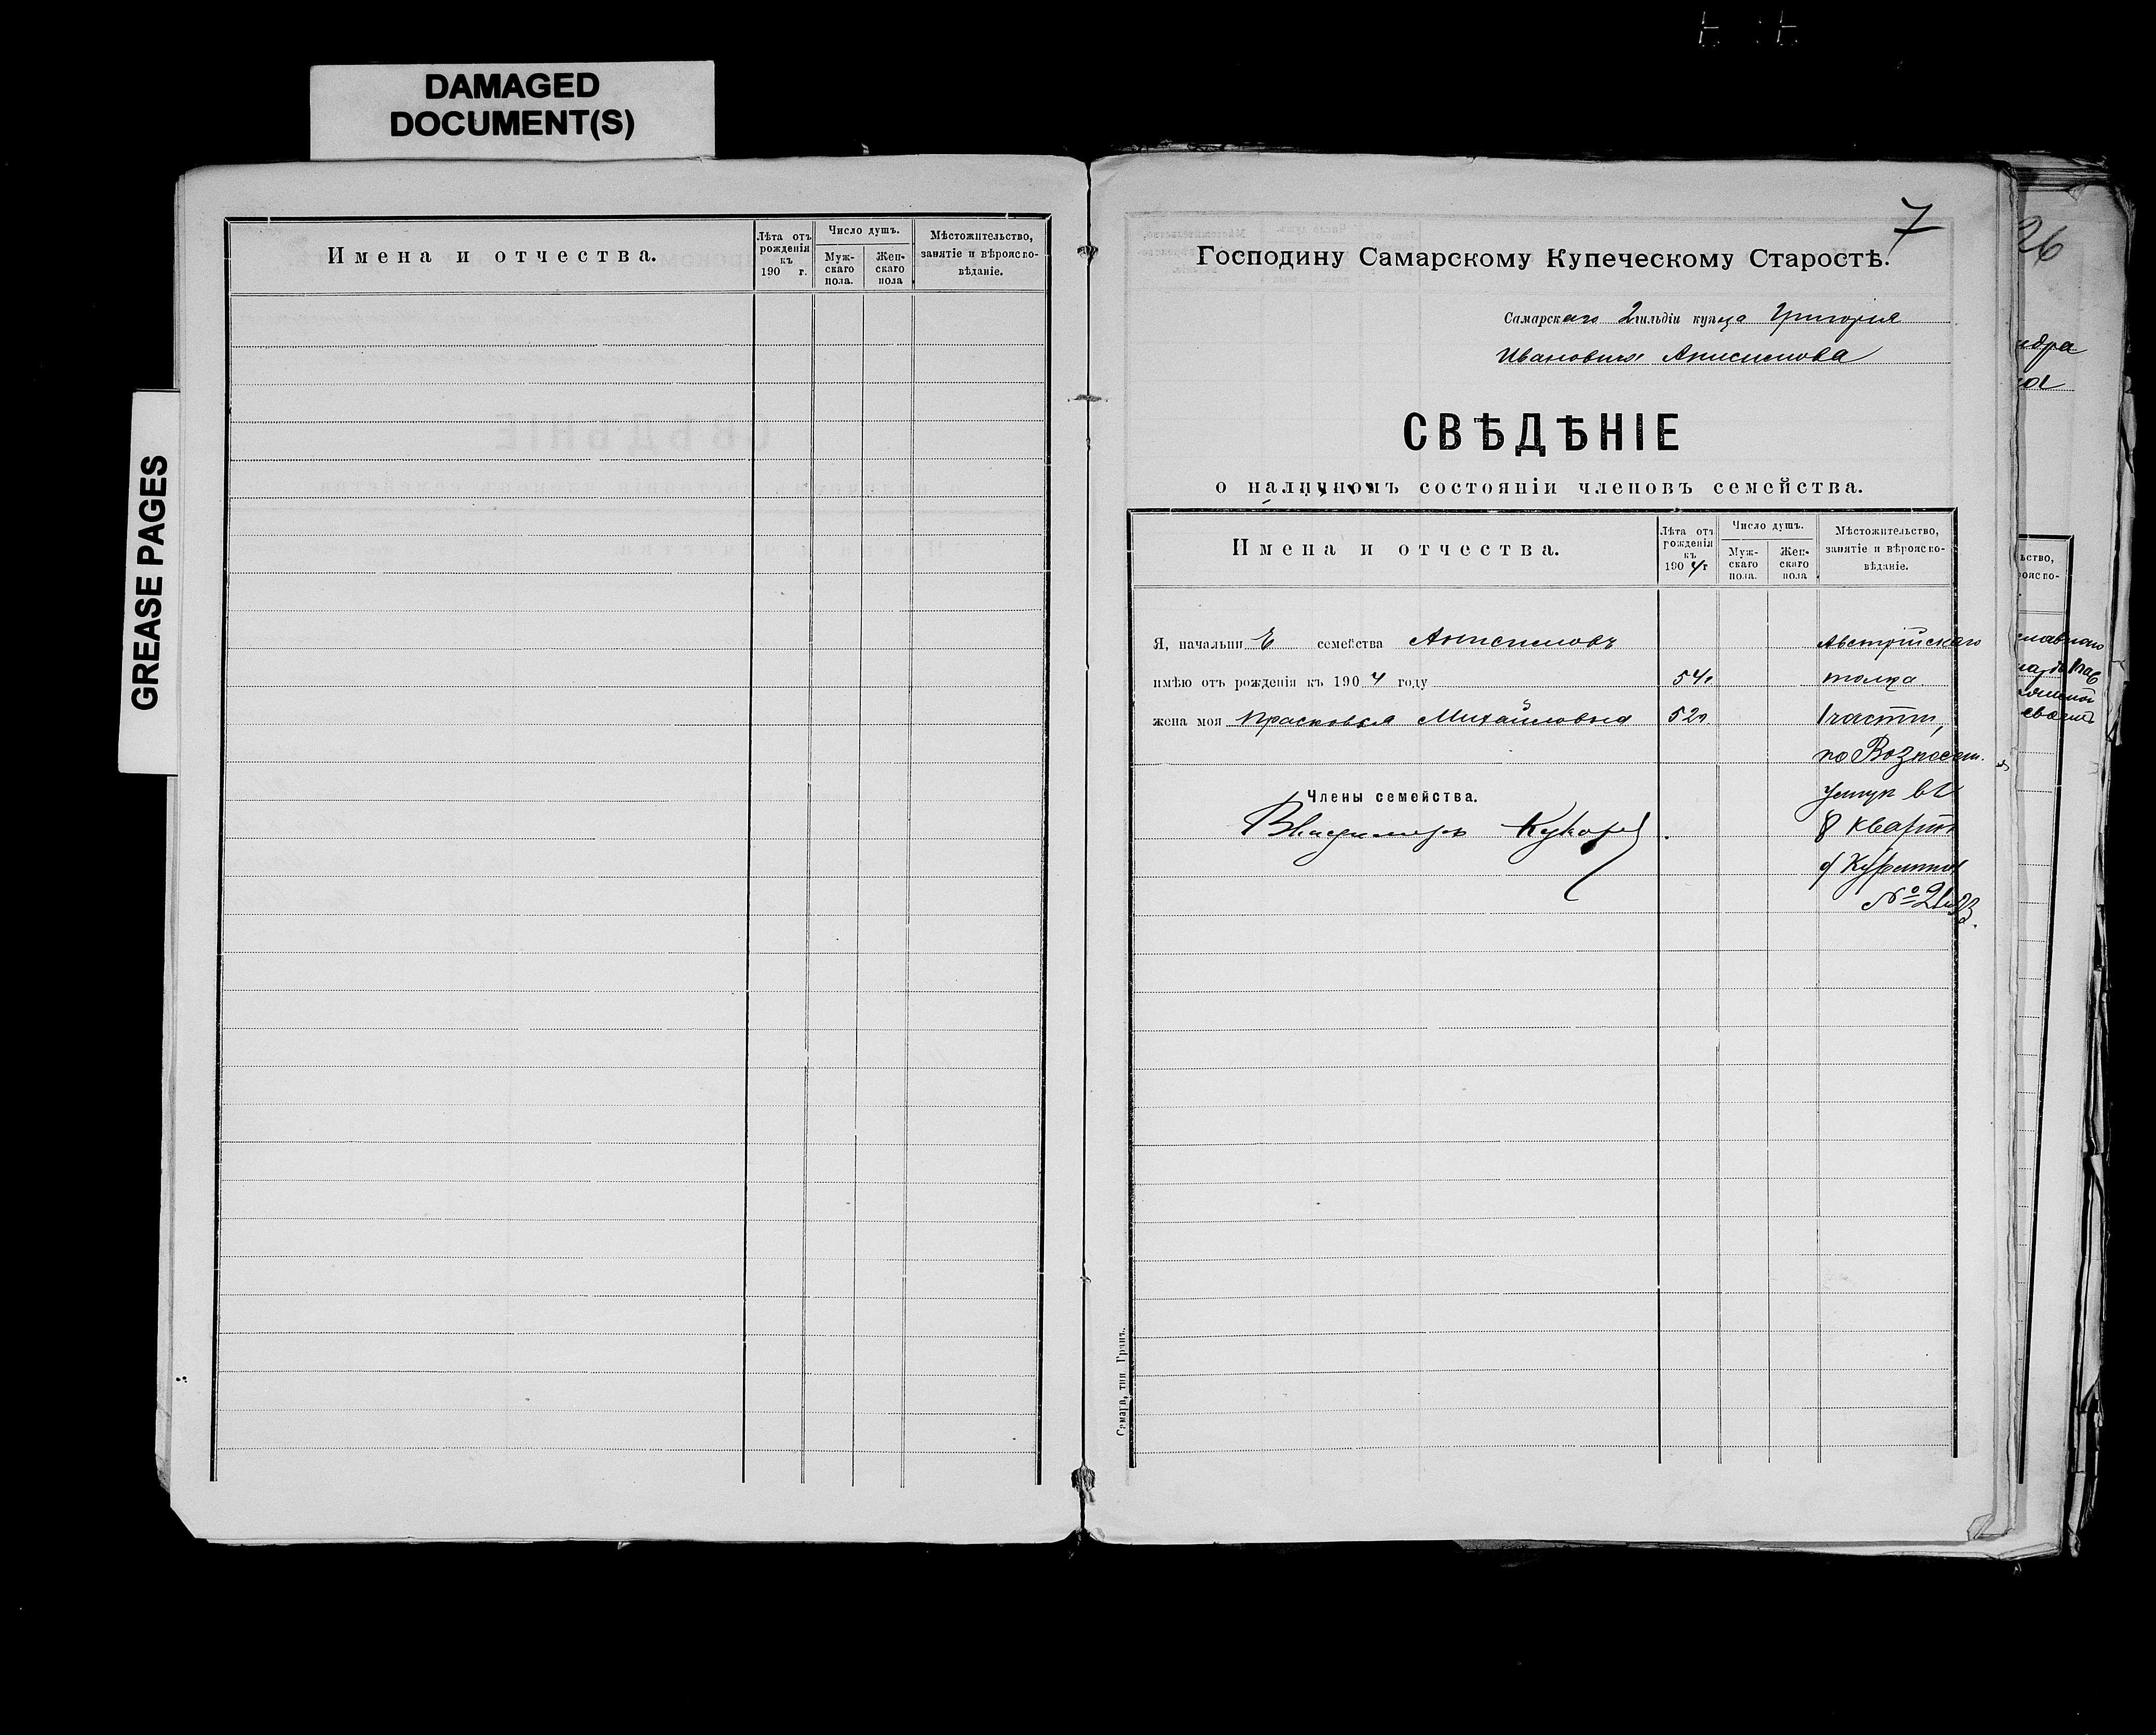 DAMAGED
DOCUMENT(S)
GREASE PAGES
Имена и отчества.
Лѣта отъ рожденія къ 190 г.
Число душъ.
Муж-
скаго
пола.
Жен-
скаго
пола
Мѣстожительство,
занятіе и вѣроиспо-
вѣданіе.
7
Господину Самарскому Купеческому Старостѣ.
Самарскаго 2 гильдіи купца Григорія
Ивановича Анисимова
СВѢДѢНІЕ
о наличномъ состояніи членовъ семейства.
Имена и отчества.
Лѣта отъ
рожденія
къ
1904 г
Число душъ.
Муж-
скаго
пола.
Жен-
скаго
пола
Мѣстожительство,
занятіе и вѣроиспо-
вѣданіе.
Я, начальни семейства Анисимовъ Австрійскаго
имѣю отъ рожденія къ 1904 году 54 г. толка
жена моя Прасковья Михайловна 52 г. 1 части,
по Вознесен.
Члены семейства.
Владимиръ
№ 21
Самара, тип. Гранъ.
26